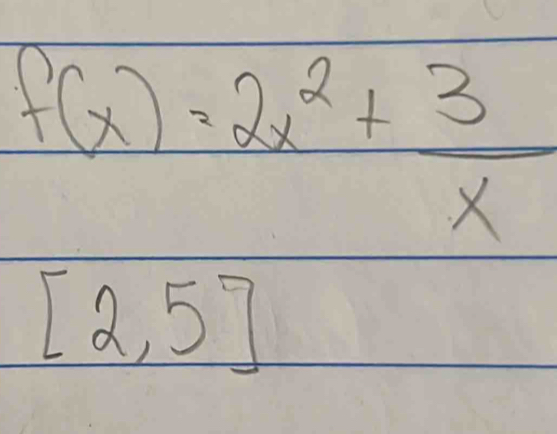 f(x) = 2x² + 3/x
[2,5]